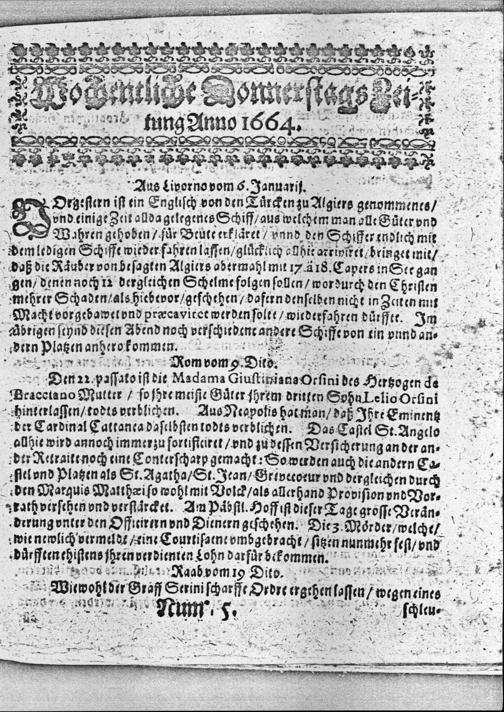 Wochentliche Donnerstags Zei-
tung Anno 1664.
Aus Livorno vom 6. Januarii.
VOrgestern ist ein Englisch von den Türcken zu Algiers genommenes/
vnd einige Zeit allda gelegenes Schiff/ aus welchem man alle Güter vnd
Wahren gehoben/ für Beute erkläret/ vnnd den Schiffer endlich mit
dem ledigen Schiffe wieder fahren lassen/ glücklich allhie arriviret/ bringet mit/
daß die Räuber von besagten Algiers abermahl mit 17. à 18. Capers in See gan
gen/ denen noch 12 dergleichen Schelme folgen sollen/ wordurch den Christen
mehrer Schaden/ als hiebevor/ geschehen/ dafern denselben nicht in Zeiten mit
Macht vorgebawet vnd præcaviret werden solte/ wiederfahren dürffte. Im
übrigen seynd diesen Abend noch verschiedene andere Schiffe von ein vnnd an-
dern Platzen anhero kommen.
Rom vom 9. Dito.
Den 22. passato ist die Madama Giustiniana Orsini des Hertzogen de
Bracciano Mutter/ so ihre meiste Güter jhrem dritten Sohn Lelio Orsini
hinterlassen/ todts verblichen. Aus Neapolis hat man/ daß Ihre Eminentz
der Cardinal Cattanea daselbsten todts verblichen. Das Castel St. Angelo
allhie wird annoch immerzu fortificiret/ vnd zu dessen Versicherung an der an-
der Retraite noch eine Conterscharp gemacht: So werden auch die andern Ca-
stel vnd Platzen als St. Agatha/ St. Jean/ Grivecoeur vnd dergleichen durch
den Marquis Matthæi so wohl mit Volck/ als allerhand Provision vnd Vor-
rath versehen vnd verstärcket. Am Päbstl. Hoff ist dieser Tage grosse Verän-
derung unter den Officirern vnd Dienern geschehen. Die 3. Mörder/ welche/
wie newlich vermeldt/ eine Courtisane vmbgebracht/ sitzen nunmehr fest/ vnd
dürfften ehistens jhren verdienten Lohn darfür bekommen.
Raab vom 19 Dito.
Wiewohl der Graff Serini scharffe Ordre ergehen lassen/ wegen eines
Num. 5. schleu-